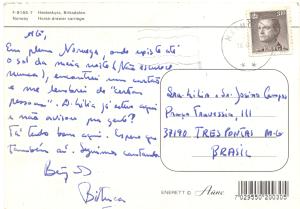 F-9146-7 Hesteskyss, Briksdalen
Norway Horse drawn carriage.
Alô,
Em plena Noruega, onde existe até
o sol da meia noite (não escurece
nunca), encontrei um cartão
e me lembrei de "certas
pessoas". D. Lilia já esteve aqui
e não avisou pra gente?
Tá tudo bem aqui. Espero que
também aí. Seguimos cantando
Sra. Lilia e Sr. Josino Campos
Praça Travessia, 111
37190 TRES PONTAS M-G
BRASIL
ENERETT © Aune
7029550200305